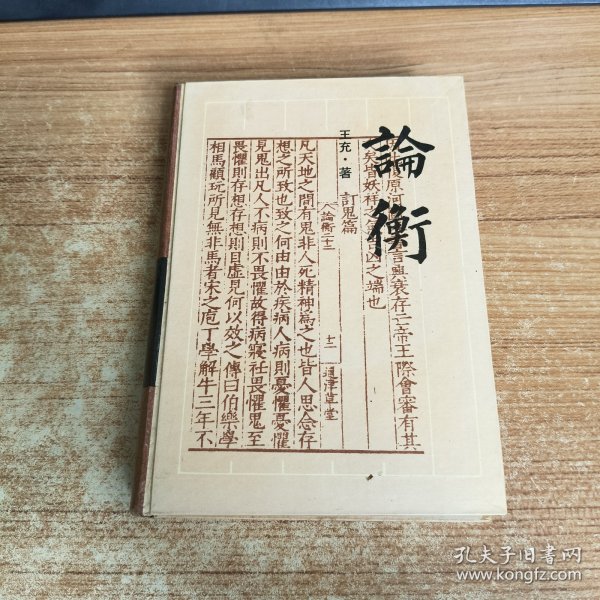 論衡
王充·著
言與衰存亡帝王際會審有其
矣皆妖祥之氣吉凶之端也
訂鬼篇
論衡二十二
十一
通津草堂
凡天地之間有鬼非人死精神為之也皆人思念存
想之所致也致之何由由於疾病人病則憂懼憂懼
見鬼出凡人不病則不畏懼故得病寢衽畏懼鬼至
畏懼則存想存想則目虛見何以效之傳曰伯樂學
相馬顧玩所見無非馬者宋之庖丁學解牛三年不
孔夫子旧书网
www.kongfz.com